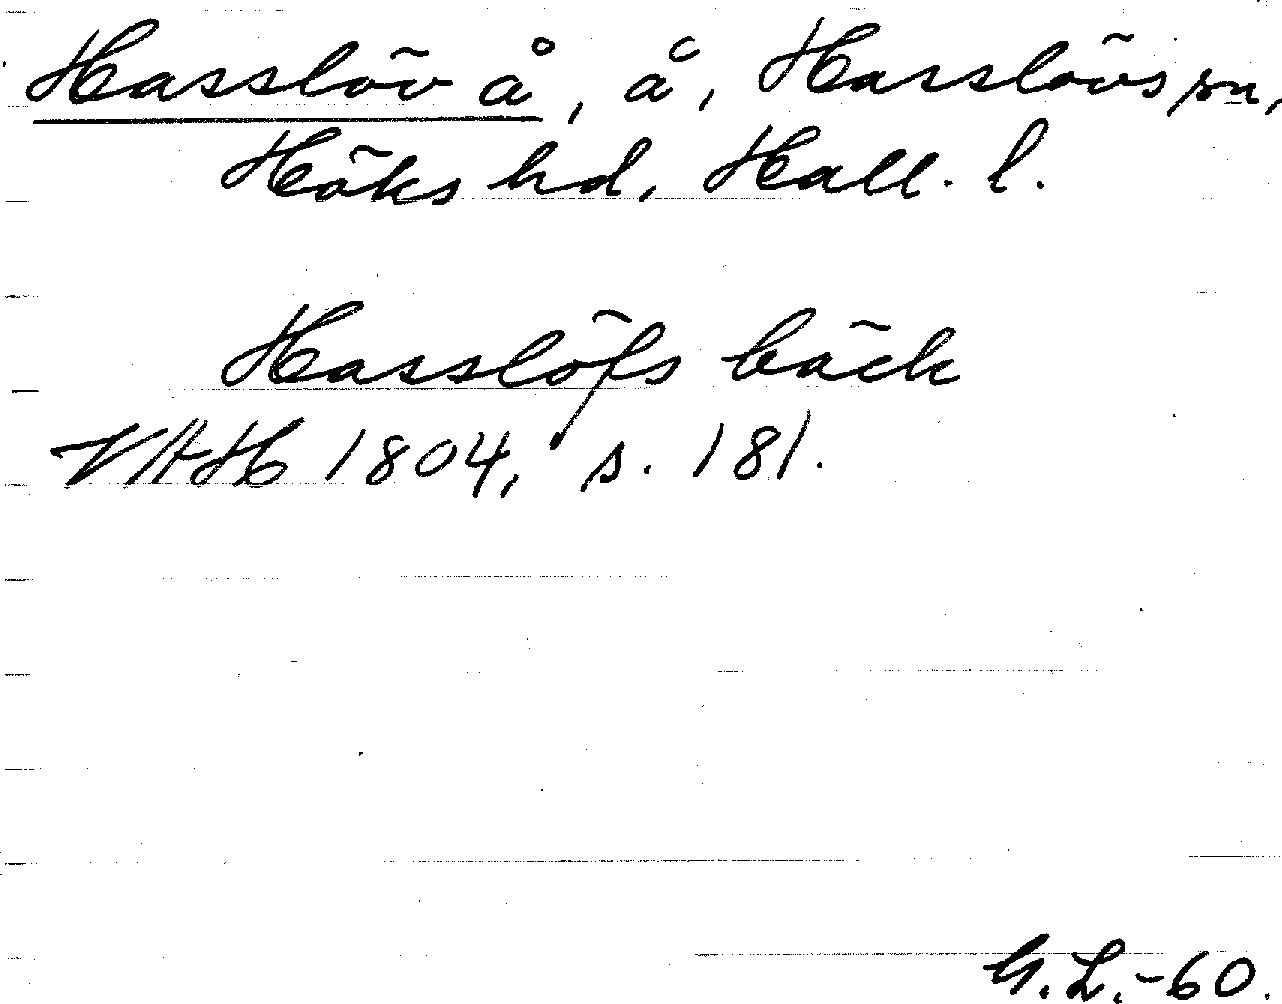 Hasslöv å, å, Hasslövs sn,
Höks hd, Hall. l.
Hasslöfs bäck
VAH 1804, s. 181.
G.L.-60.